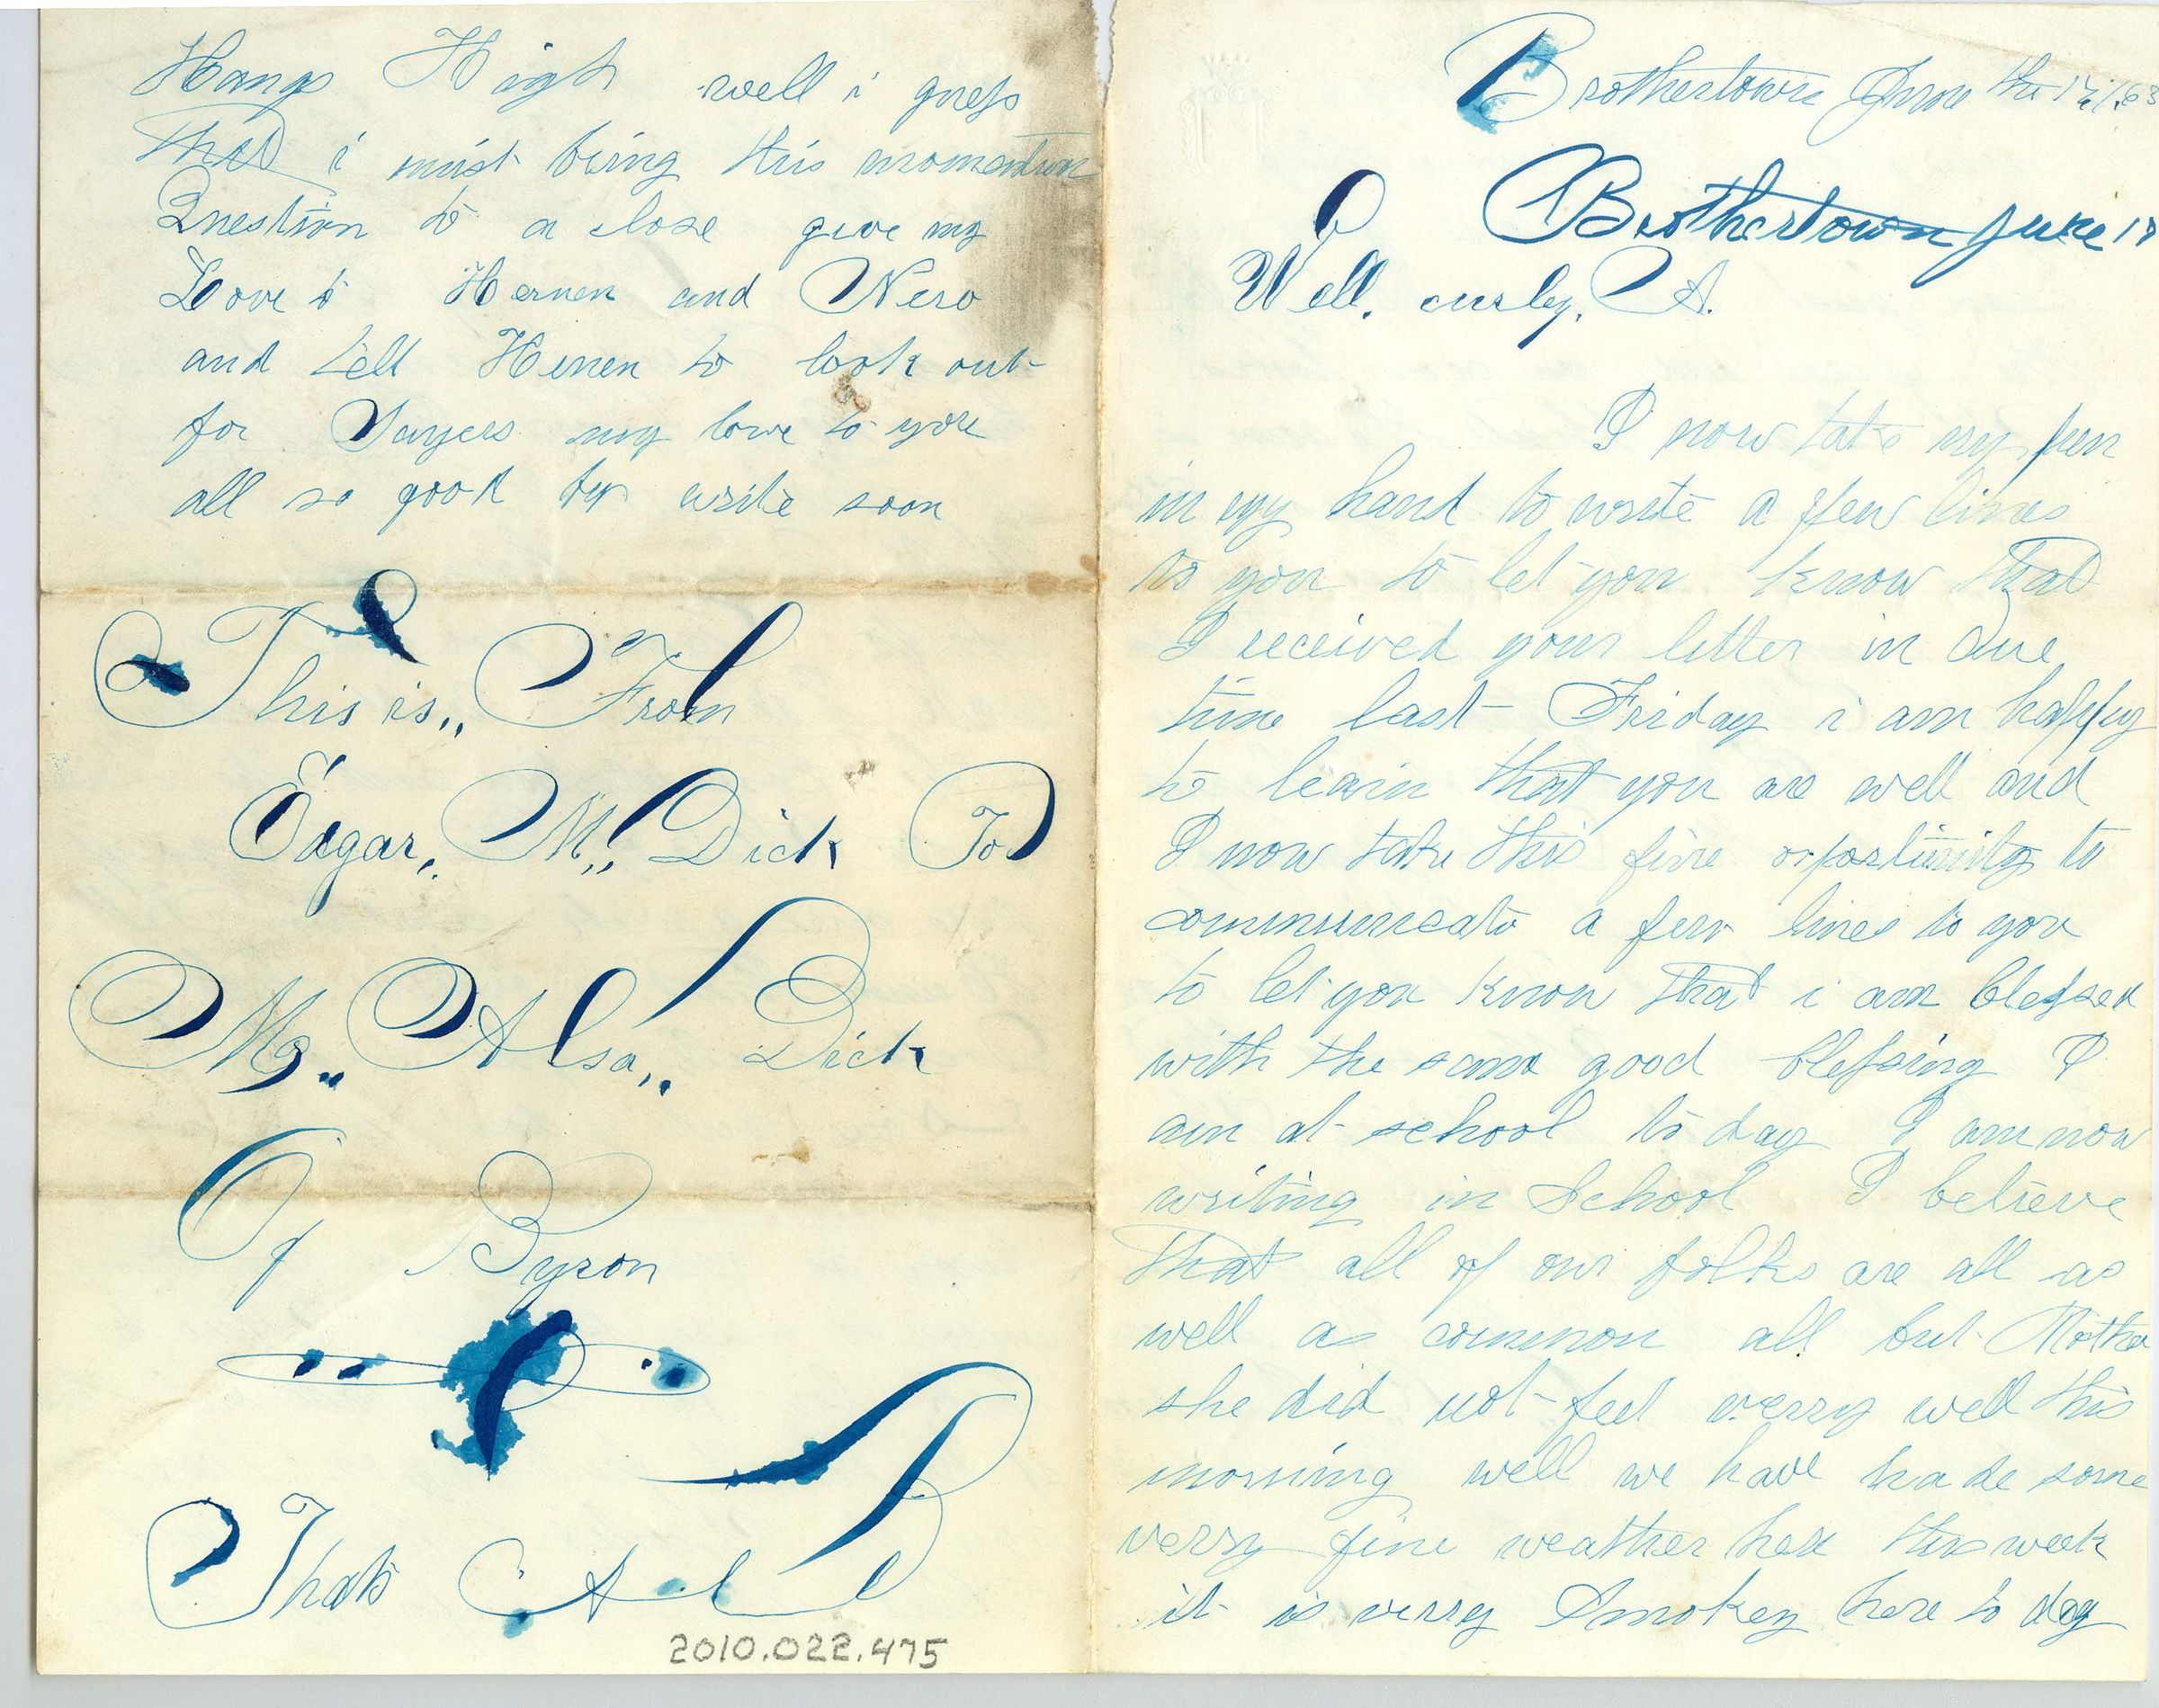 Hangs High well i guess
that i must bring this momentum
Question to a close give my
Love to Hernen and Nero
and tell Hernen to look out
for Sayers my love to you
all so good by write soon
This is,, From
Edgar,, M,, Dick To
Mr,, Alsa,, Dick
Of Byron
Thats All
2010.022.475
Brothertown June the 17/63
Brothertown June 17
Well. curly. A.
I now take my pen
in my hand to write a few lines
to you to let you know that
I received your letter in due
time last Friday i am happy
to learn that you are well and
I now take this fine opportunity to
communicate a few lines to you
to let you know that i am blessed
with the same good blessing I
am at school to day I am now
writing in School I believe
that all of our folks are all as
well as common all but Mother
she did not feel verry well this
morning well we have hade some
verry fine weather here this week
it is verry Smokey here to day